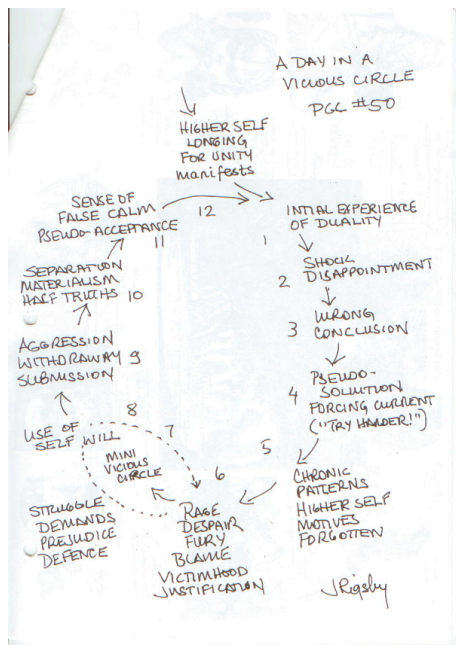 A DAY IN A
VICIOUS CIRCLE
PGL #50
HIGHER SELF
LONGING
FOR UNITY
manifests
12
INTIAL EXPERIENCE
OF DUALITY
1
SHOCK
DISAPPOINTMENT
2
WRONG
CONCLUSION
3
PSEUDO-
SOLUTION
FORCING CURRENT
("TRY HARDER!")
4
5
CHRONIC
PATTERNS
HIGHER SELF
MOTIVES
FORGOTTEN
6
RAGE
DESPAIR
FURY
BLAME
VICTIMHOOD
JUSTIFICATION
7
MINI
VICIOUS
CIRCLE
STRUGGLE
DEMANDS
PREJUDICE
DEFENCE
8
USE OF
SELF WILL
AGGRESSION
WITHDRAWAY 9
SUBMISSION
SEPARATION
MATERIALISM
HALF TRUTHS 10
11
SENSE OF
FALSE CALM
PSEUDO-ACCEPTANCE
JRigsby